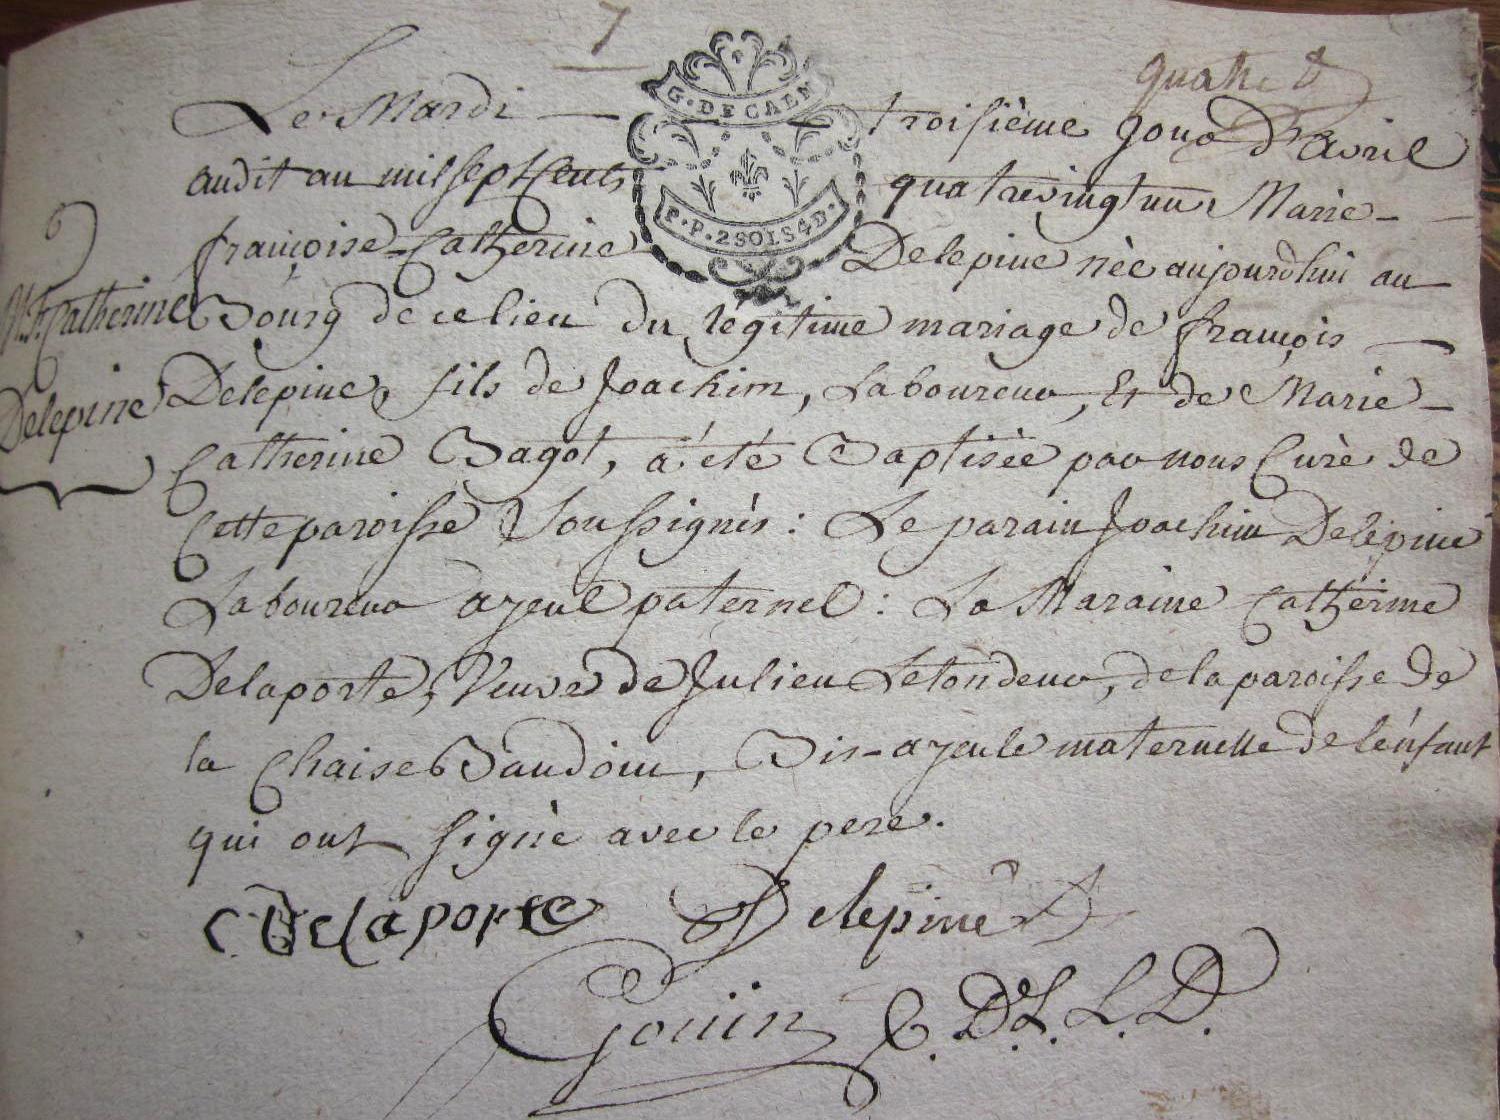 7
quatre
G. DE CAEN
P. P. 2 SOLS 4 D.
Le Mardi troisième jour d'avril
audit an mil sept cents quatrevingt un Marie
françoise Catherine Delepine née aujourdhui au
Bourg de ce lieu du légitime mariage de françois
Delepine, fils de Joachim, Laboureur, Et de Marie
Catherine Bagot, a été Baptisée par nous Curé de
Cette paroisse Soussignés : Le parain Joachim Delépine
Laboureur ayeul paternel : La Maraine Catherine
Delaporte, Veuve de Julien Letondeur, de la paroisse de
la Chaise Baudouin, Bis-ayeule maternelle de l'énfant
qui ont signé avec le pere.
M. F. Catherine
Delepine
C Delaporte Delepine
Goüin C. D. L. L. D.